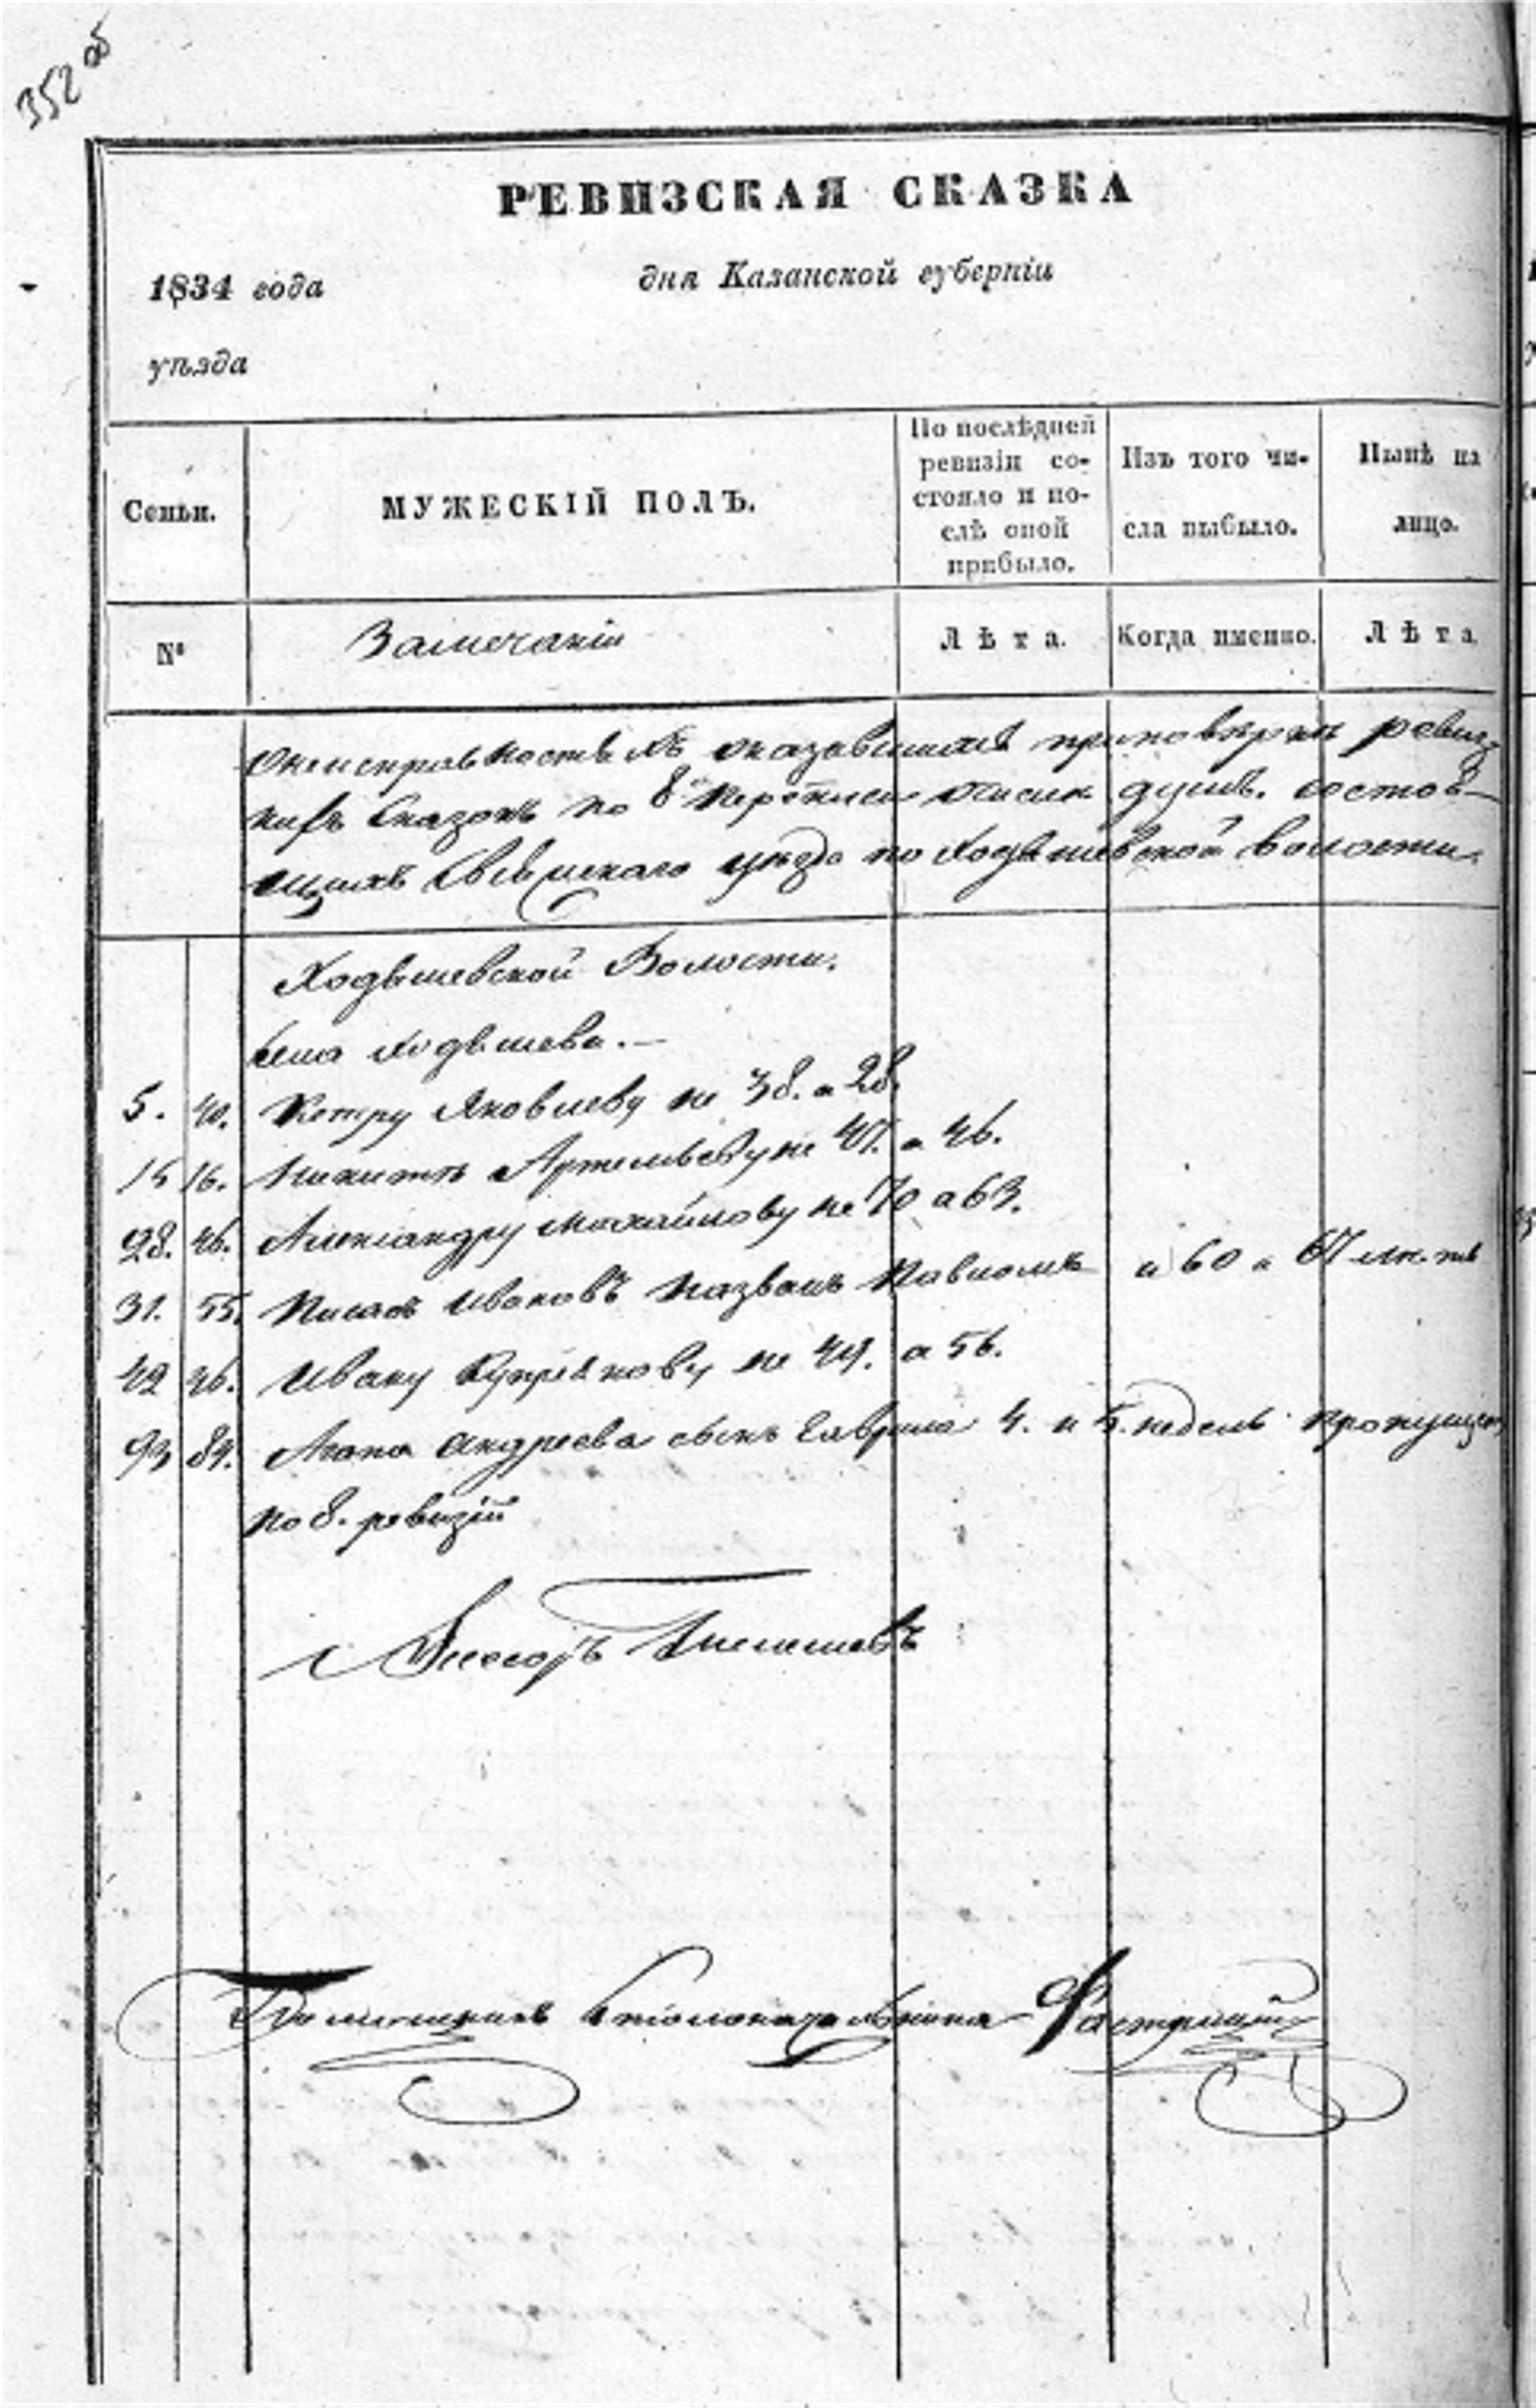 352 об
РЕВИЗСКАЯ СКАЗКА
1834 года дня Казанской губерніи
уѣзда
Семьи.
МУЖЕСКІЙ ПОЛЪ.
По послѣдней
ревизіи со-
стояло и по-
слѣ оной
прибыло.
Изъ того чи-
сла выбыло.
Нынѣ на
лицо.
№
Замечаніи
Лѣта.
Когда именно.
Лѣта.
Онеисправностяхъ оказавшихся приповѣркѣ ревиз
кихъ Сказокъ по 8 Переписи душъ. состоя-
щихъ уѣзда по Ходяшевской волости.
Ходяшевской Волости.
Села Ходяшева.—
5. 10. Петру Яковлеву не 38. а 28.
15 16. Никитѣ Артемьеву не 47. а 46.
28. 46. Александру Михайлову не 70 а 63.
31. 55. Ивановъ Названъ Павломъ и 60 а 67
42 36. Ивану Купреянову не 49. а 56.
93 84. Андреева сынъ Гаврила 4. и 5. недель пропущен
по 8. ревизіи
Помощникъ Столоначальника